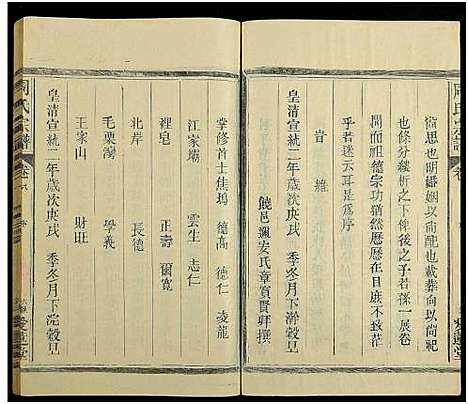 周氏宗譜
尚思也明婚姻以尚配也載蒸嘗以尚祀
也條分縷析之下俾後之子若孫一展卷
間而祖德宗功猶然歷歷在目庶不致茫
乎若迷云耳是爲序
旹維
皇清宣統二年歲次庚戌季冬月下澣穀旦
饒邑邇安氏章寶賢拜撰
掌修首士焦塢 德高 德仁 凌龍
江家壩 雲生 志仁
裡皂 正壽 爾寬
北岸 長德
毛栗灣 學義
王家山 財旺
皇清宣統二年歲次庚戌季冬月下浣穀旦
周氏宗譜
卷
愛蓮堂